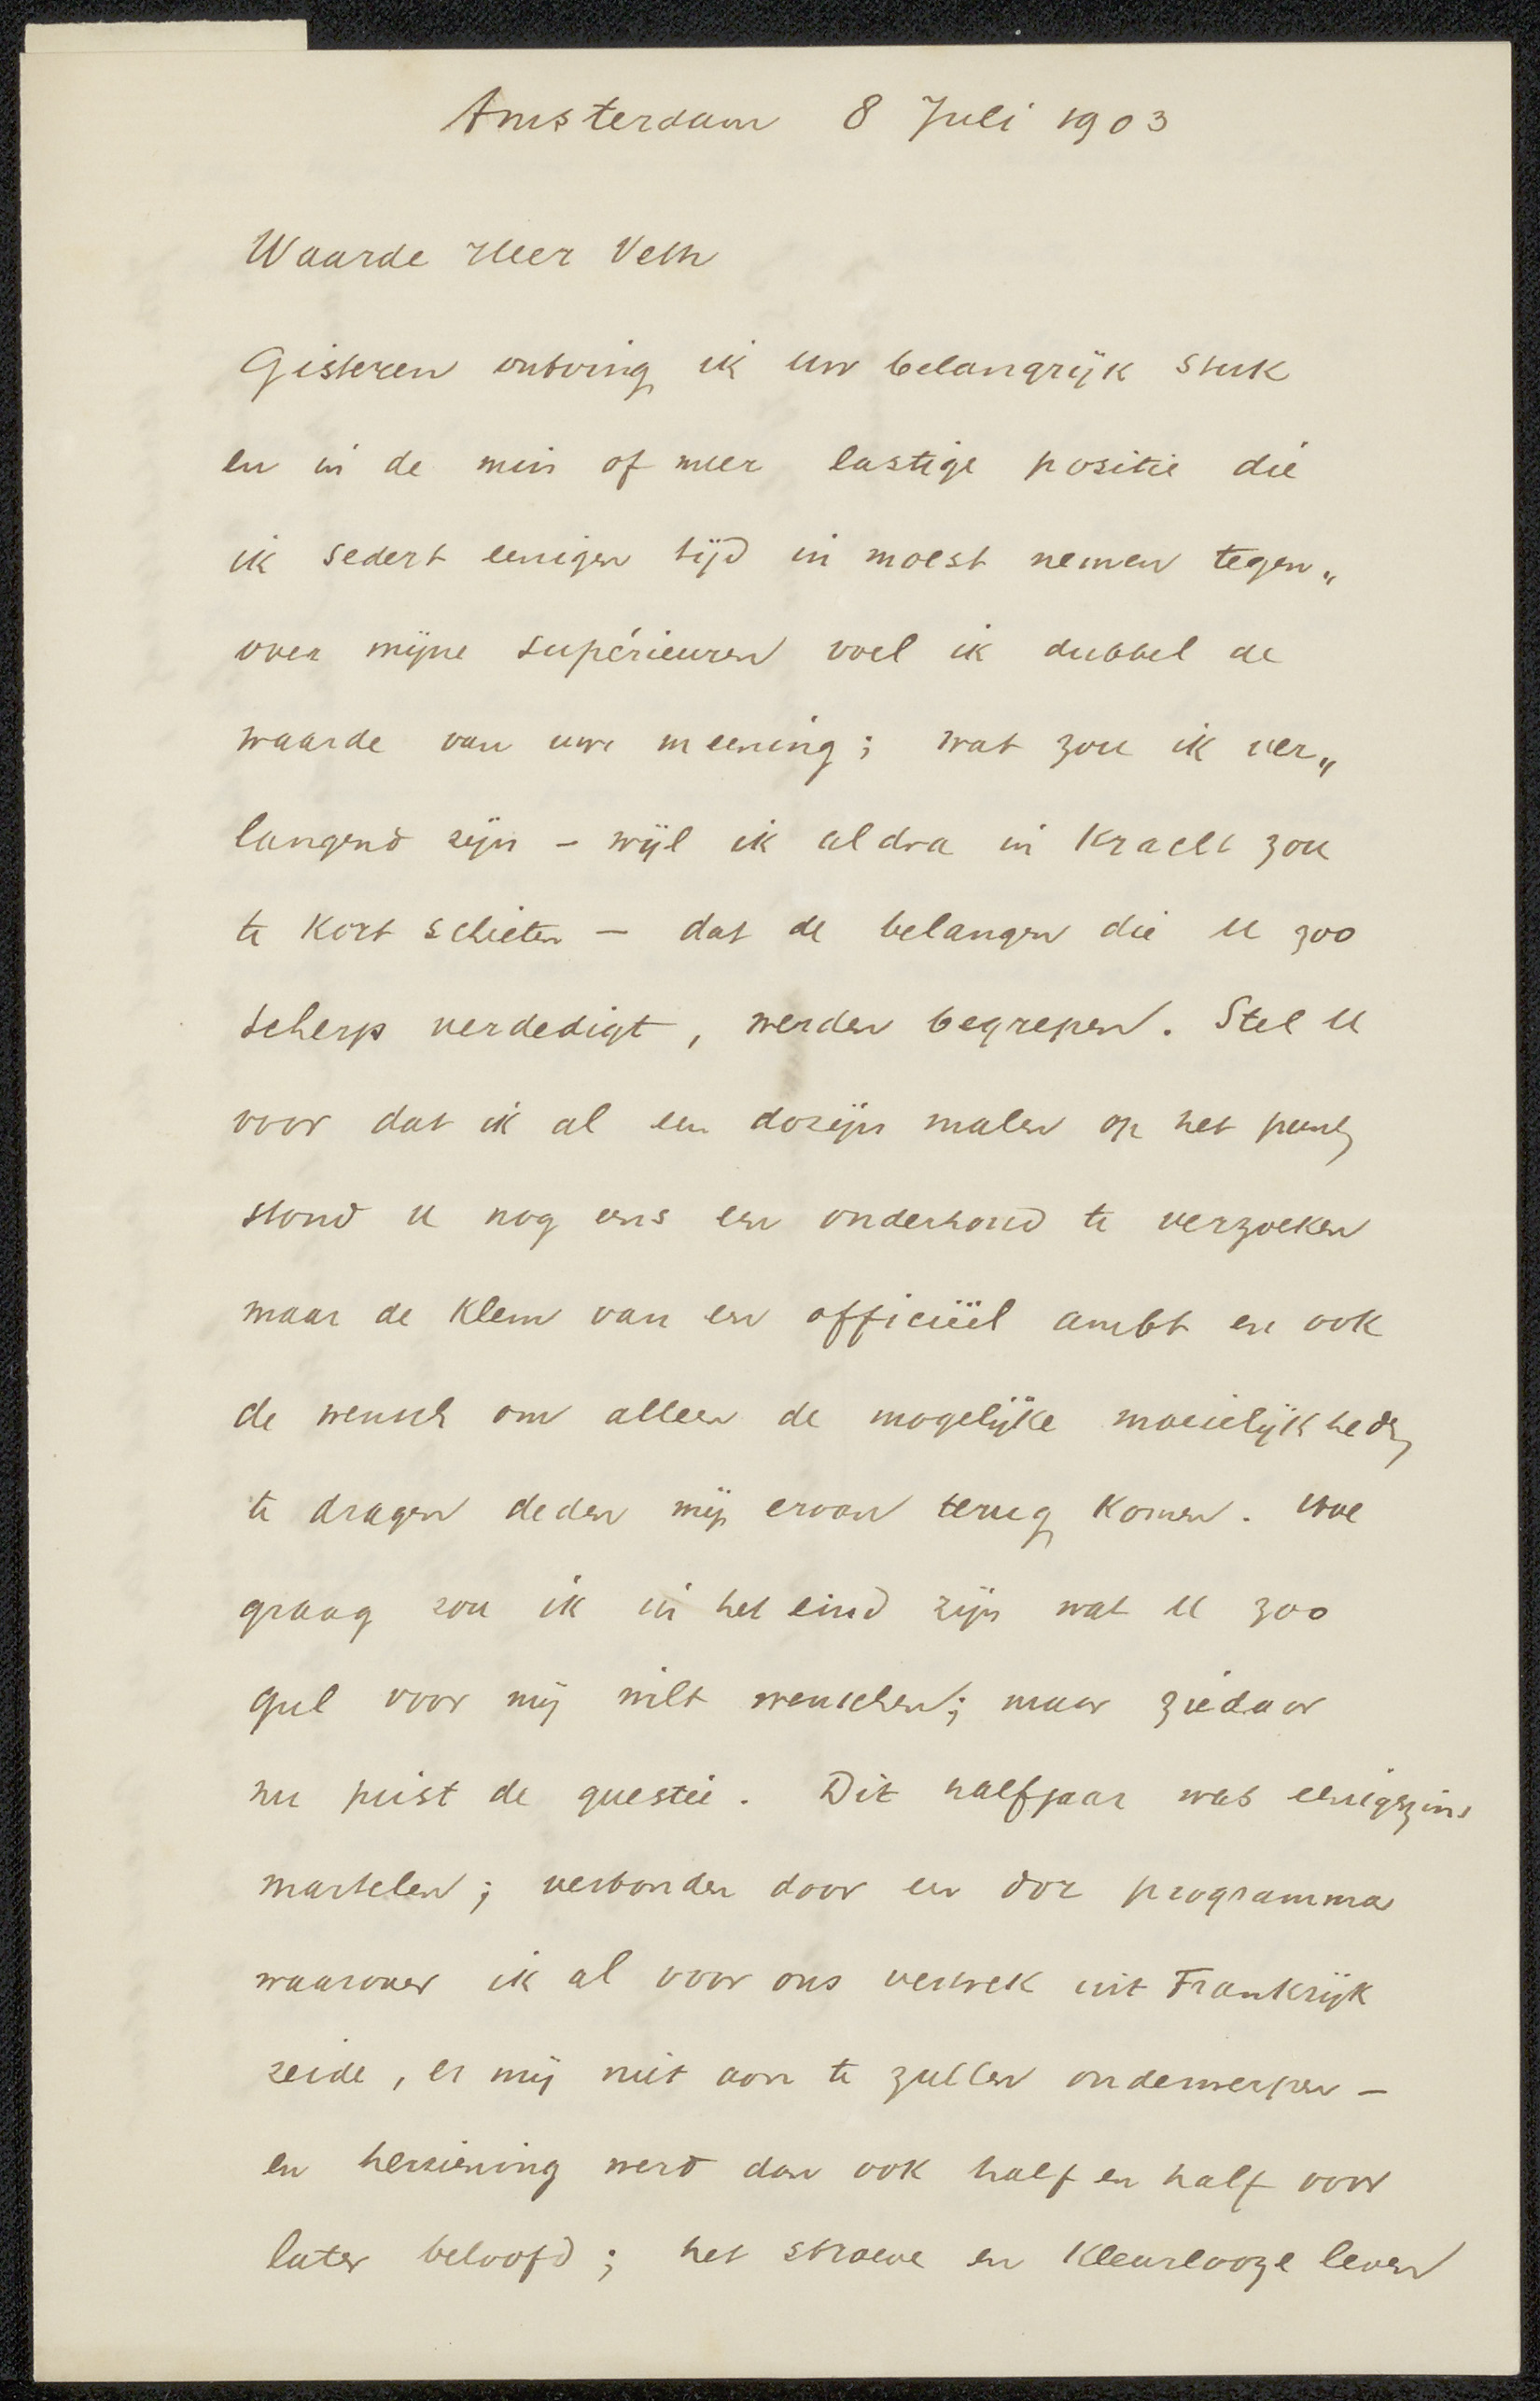 Amsterdam 8 Juli 1903
Waarde Heer Veth
Gisteren ontving ik uw belangrijk stuk
en in de min of meer lastige positie die
ik sedert eenigen tijd in moest nemen tegen„
over mijne supérieuren voel ik dubbel de
waarde van uwe meening; wat zou ik ver„
langend zijn – wijl ik aldra in kracht zou
te kort schieten – dat de belangen die U zoo
scherp verdedigt, werden begrepen. Stel U
voor dat ik al een dozijn malen op het punt
stond U nog eens een onderhoud te verzoeken
maar de klem van een officiëel ambt en ook
de wensch om alleen de mogelijke moeielijkheden
te dragen deden mij ervan terug komen. Hoe
graag zou ik in het eind zijn wat U zoo
gul voor mij wilt wenschen; maar ziedaar
nu juist de questie. Dit halfjaar was eenigszins
martelen; verbonden door een dor programma
waarover ik al voor ons vertrek uit Frankrijk
zeide, er mij niet aan te zullen onderwerpen –
en herziening werd dan ook half en half voor
later beloofd; het stroeve en kleurlooze leven